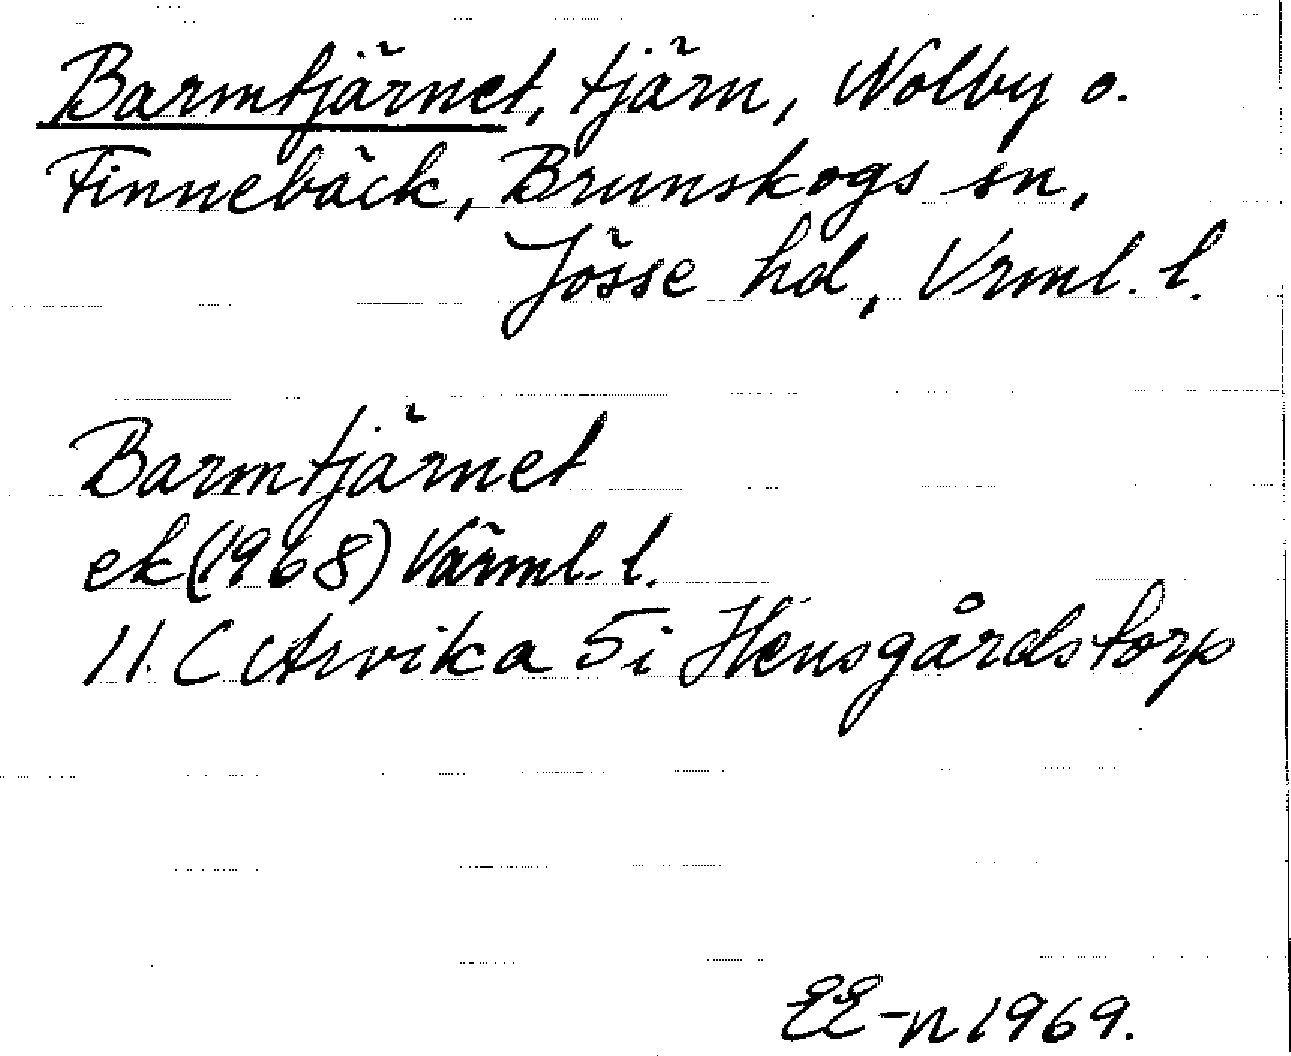 Barmtjärnet, tjärn, Nolby o.
Finnebäck, Brunskogs sn,
Jösse hd, Vrml. l.
Barmtjärnet
ek (1968) Värml. l.
11. C Arvika 5i Hensgårdstorp
EE-n 1969.